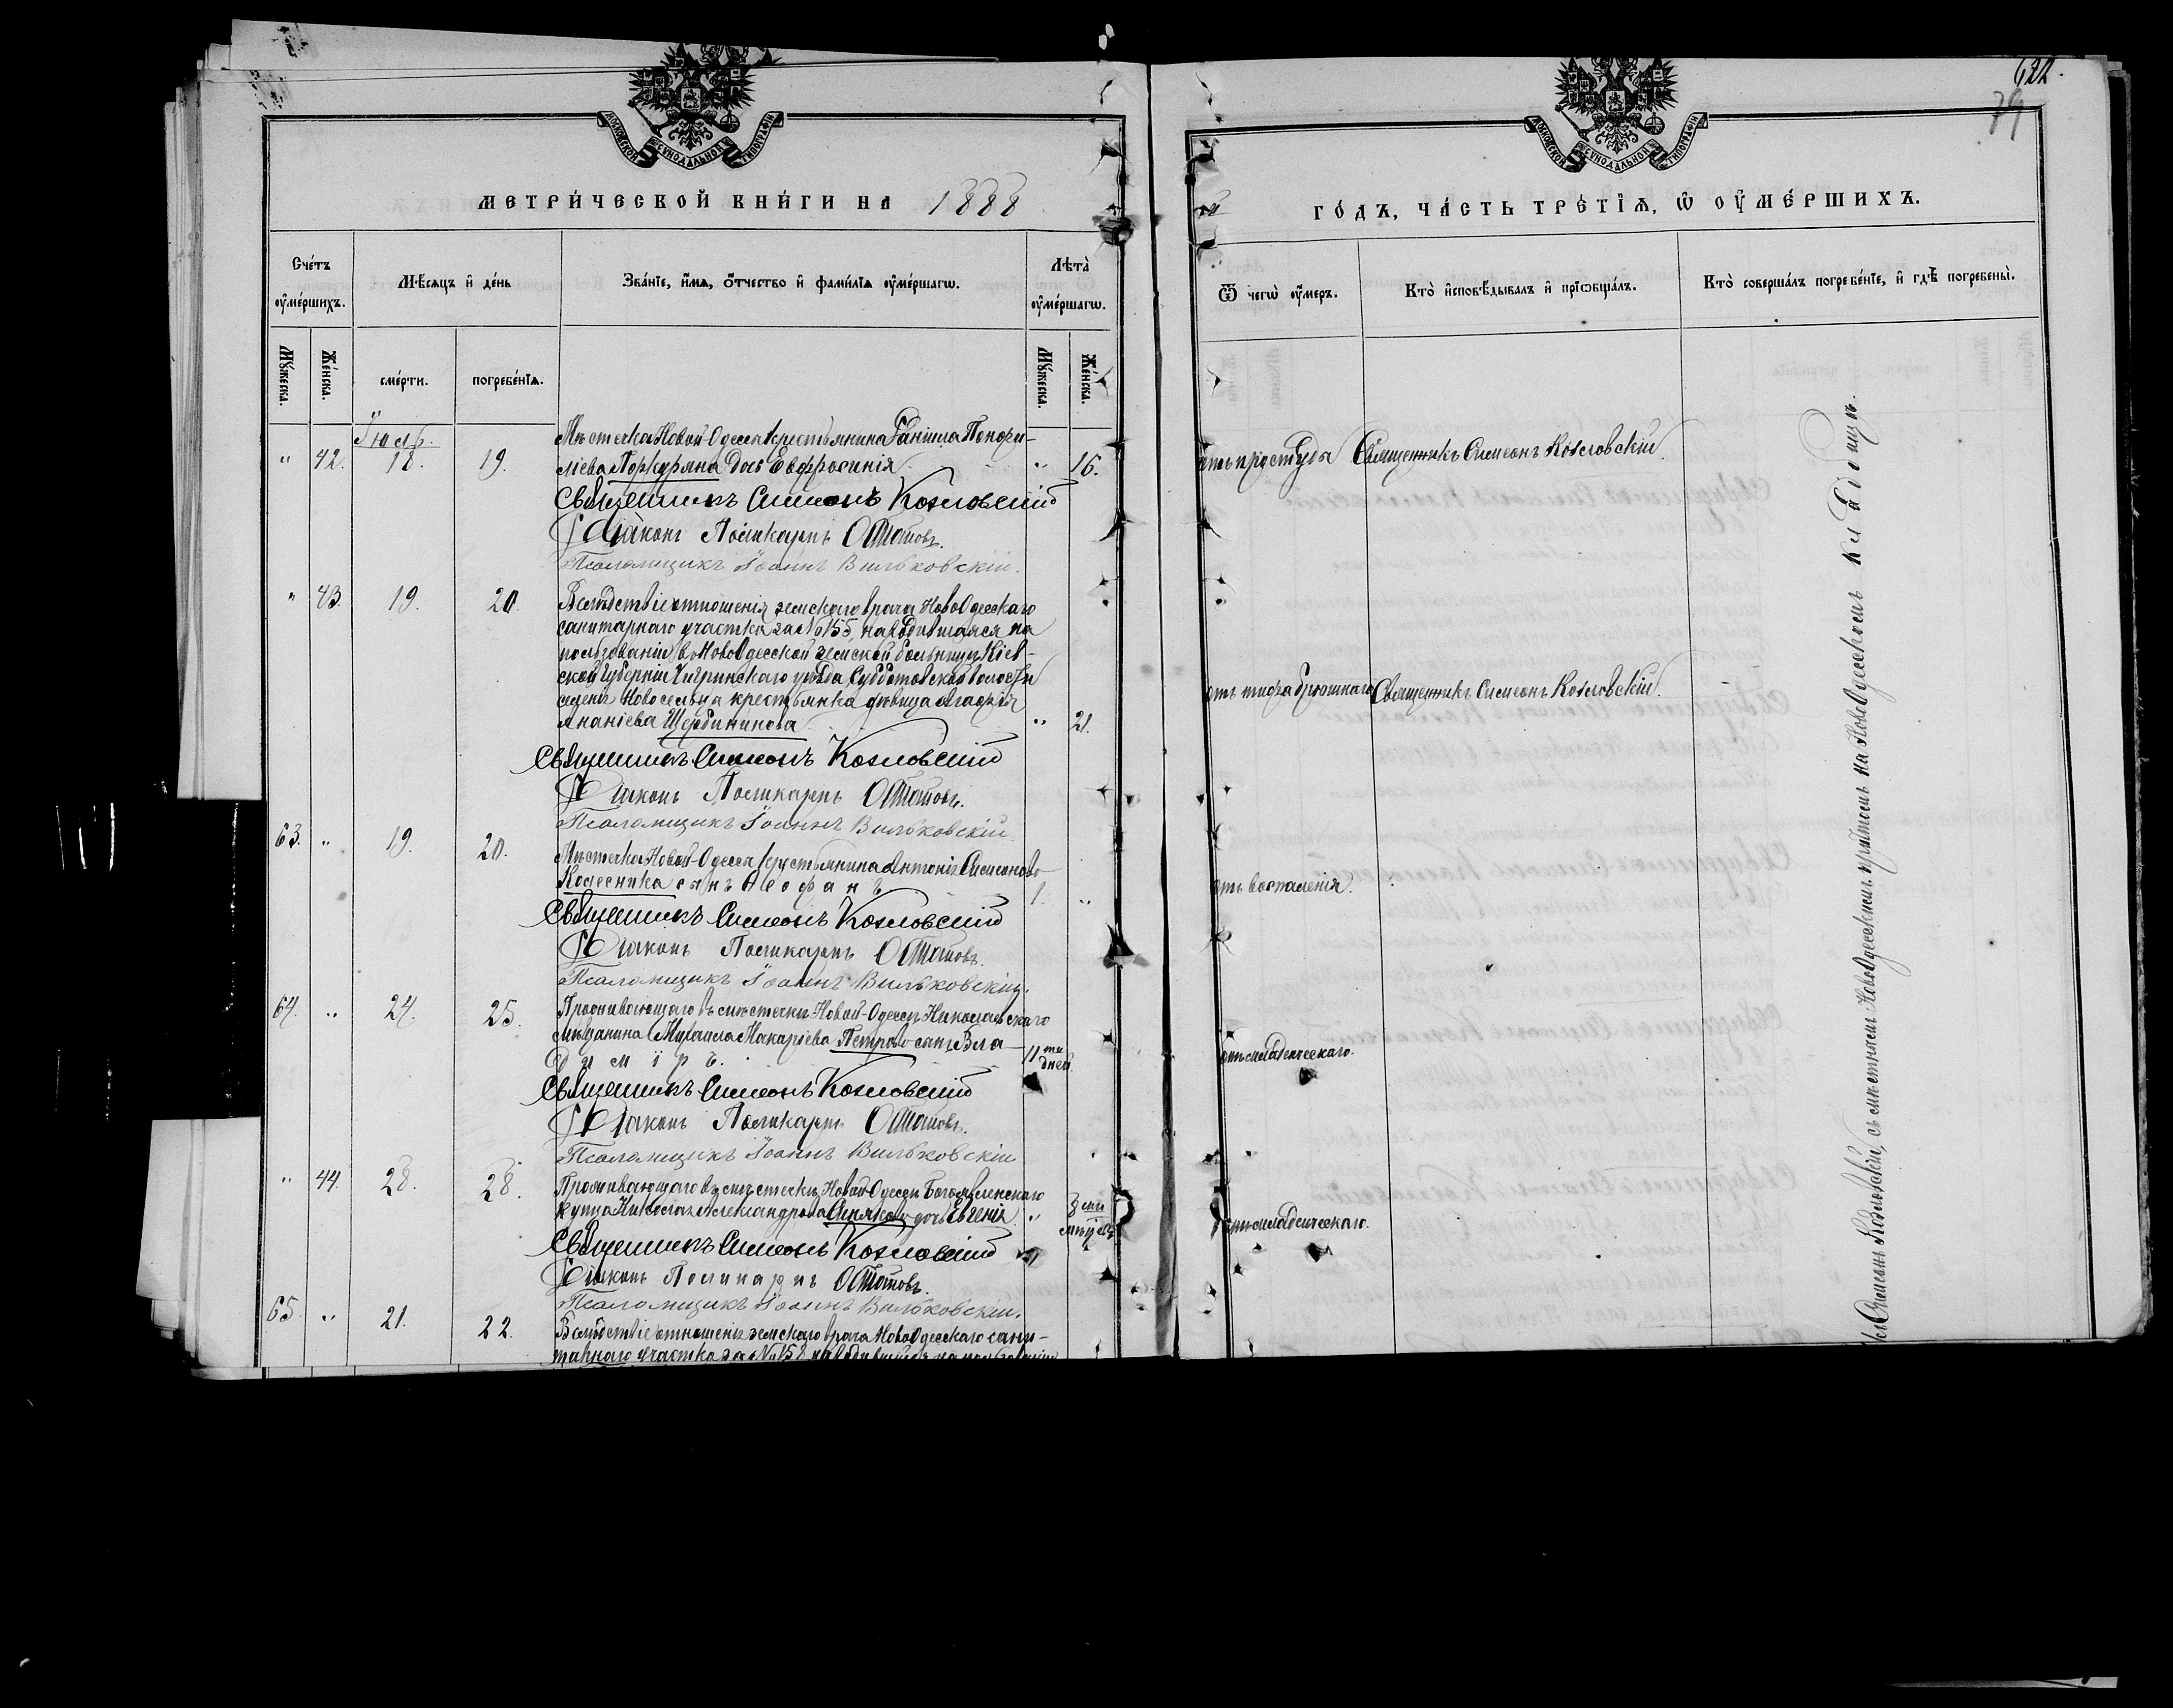 МОСКОВСКОЙ СѴНОДАЛЬНОЙ ТИПОГРАФІИ
МЕТРИ́ЧЕСКОЙ КНИ́ГИ НА 1888
Сче́тъ оу҆ме́ршихъ.
Мѣ́сяцъ и҆ де́нь
Зва́нїе, и҆́мя, ѻ҆́тчество и҆ фами́лїя оу҆ме́ршагѡ.
Лѣта̀ оу҆ме́ршагѡ.
Мꙋ́жеска.
Же́нска.
сме́рти.
погребе́нїѧ.
Мꙋ́жеска.
Же́нска.
Іюль.
Мѣстечка Новой-Одессы крестьянина Данiила
" 42. 18. 19. дочь Евфросинія " 16.
Священникъ Симеонъ Козловскій
Діаконъ Поликарпъ
Псаломщикъ Іоаннъ Вильковскій.
" 43. 19. 20. Вслѣдствіе отношенія земскаго врача НовоОдесскаго
санитарнаго участка за № 155, находившаяся на
пользованіи въ НовоОдесской земской больницѣ Кіев-
ской Губерніи Чигринскаго уѣзда, Субботовской волости
селенія Новосельца крестьянка дѣвица Агафія
Ананіева " 21.
Священникъ Симеонъ Козловскій
Діаконъ Поликарпъ
Псаломщикъ Іоаннъ Вильковскій
63. " 19. 20. Мѣстечка Новой-Одессы крестьянина Антонія Симеонова
Колесника сынъ Ѳеофанъ 1. "
Священникъ Симеонъ Козловскій
Діаконъ Поликарпъ
Псаломщикъ Іоаннъ Вильковскій.
64. " 24. 25. Проживающаго въ мѣстечкѣ Новой-Одессѣ, Николаевскаго
мѣщанина Михаила Макаріева Петрова сынъ Вла-
димiръ. 11ти дней
Священникъ Симеонъ Козловскій
Діаконъ Поликарпъ
Псаломщикъ Іоаннъ Вильковскій
" 44. 28. 28. Проживающаго въ мѣстечкѣ Новой-Одессѣ Богоявленскаго
купца Николая Александрова дочь Евгенія. " 8ми мѣсяц.
Священникъ Симеонъ Козловскій
Діаконъ Поликарпъ
Псаломщикъ Іоаннъ Вильковскій.
65 " 21. 22. Вслѣдствіе отношенія земскаго врача НовоОдесскаго сани-
тарнаго участка за № 158 находившійся на пользованіи
622.
79
МОСКОВСКОЙ СѴНОДАЛЬНОЙ ТИПОГРАФІИ
ГО́ДЪ, ЧА́СТЬ ТРЕ́ТЇѦ, Ѡ҆ ОУ҆МЕ́РШИХЪ.
Ѿ чегѡ̀ оу҆́меръ.
Кто̀ и҆сповѣ́дывалъ и҆ прїѡбща́лъ.
Кто̀ соверша́лъ погребе́нїе, и҆ гдѣ̀ погребены̀.
отъ простуды Священникъ Симеонъ Козловскій.
отъ тифа брюшнаго Священникъ Симеонъ Козловскій.
отъ воспаленія.
отъ младенческаго.
отъ младенческаго.
Симеонъ Козловскій, съ мѣстнымъ НовоОдесскимъ причтомъ на НовоОдесскомъ кладбищѣ.